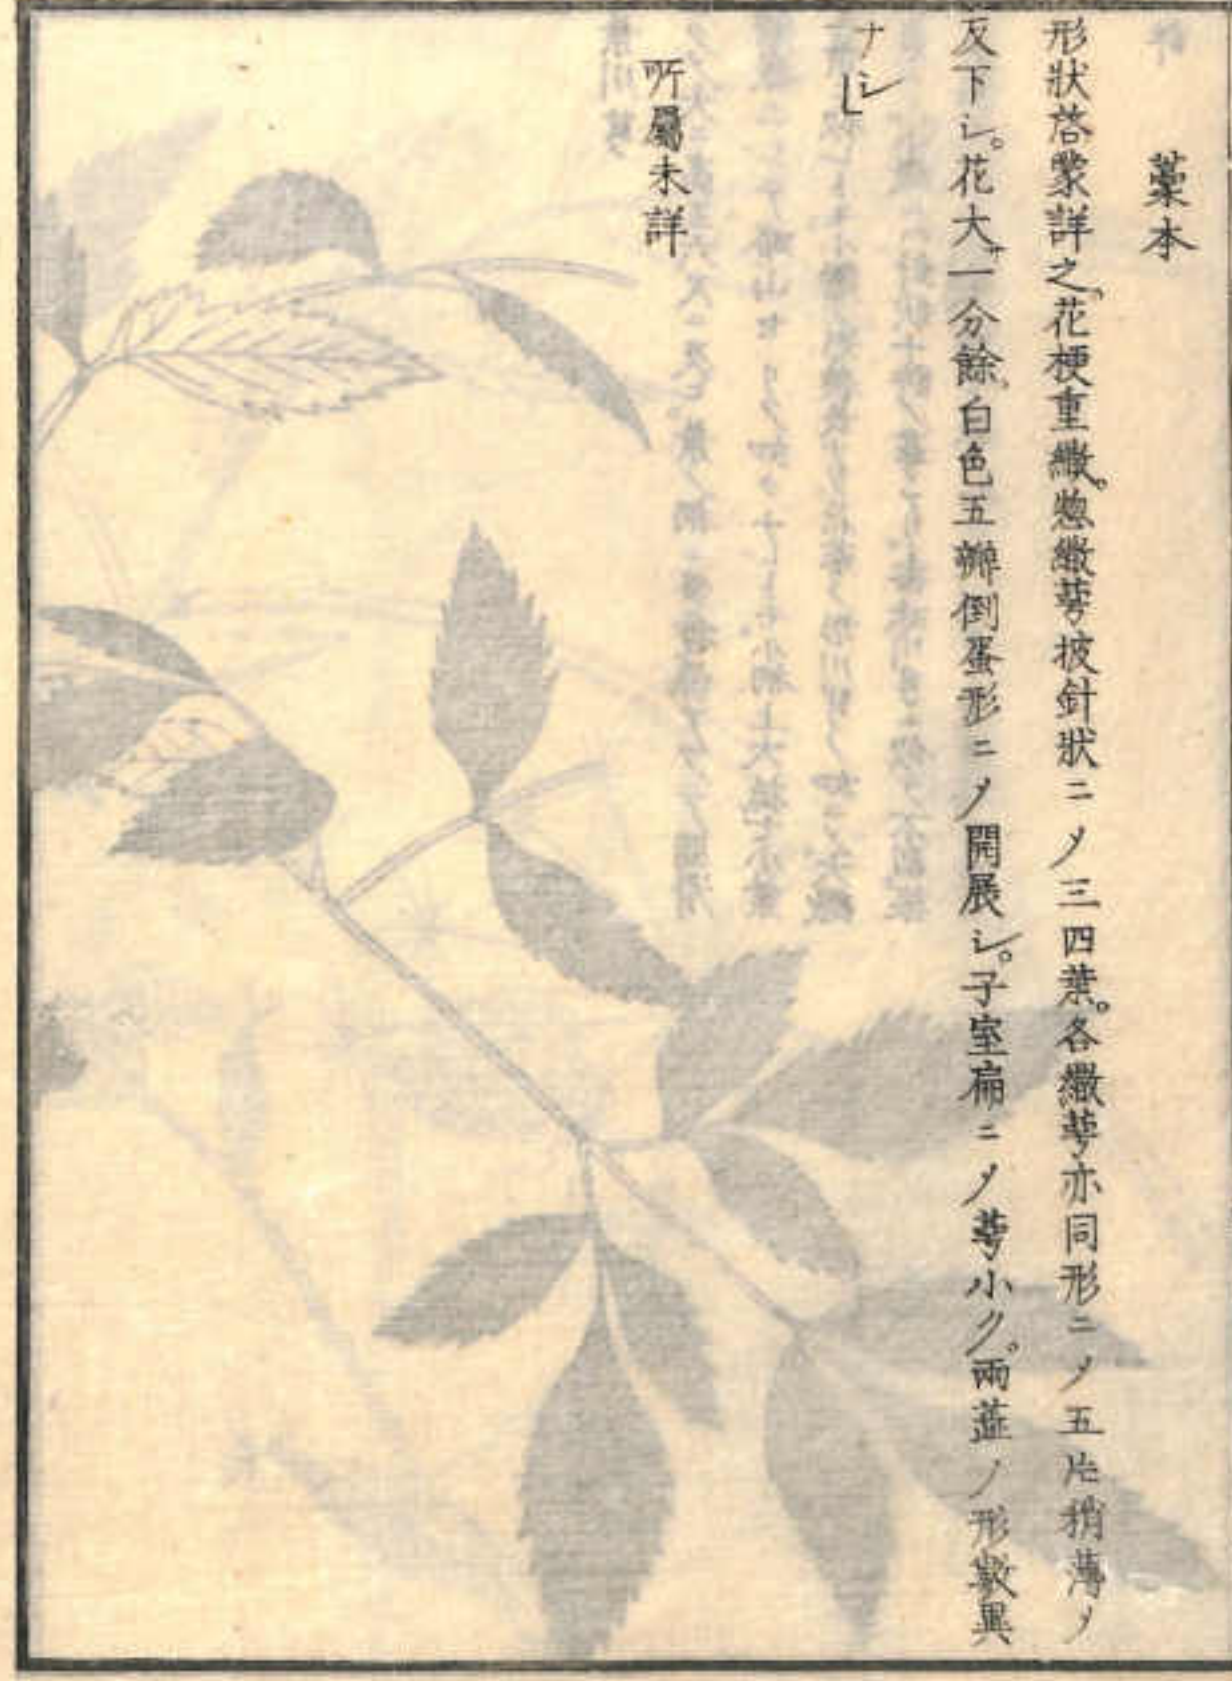 藁本
形狀啓蒙詳之。花梗重繖。惣繖萼披針狀ニ〆三四葉。各繖萼亦同形ニ〆五片稍薄〆
反下シ。花大サ一分餘。白色五瓣倒蛋形ニ〆開展シ。子室扁ニ〆萼小ク。兩蕋ノ形數異
ナシ
所屬未詳